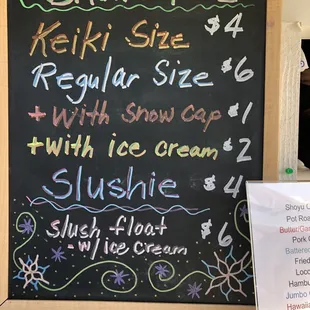 Keiki Size $4
Regular Size $6
+ With Snow Cap $1
+ With ice cream $2
Slushie $4
Slush float $6
- w/ ice cream
Shoyu
Pot Roa
Butter/Ga
Pork
Battered
Fried
Loco
Hambu
Jumbo
Hawaiia